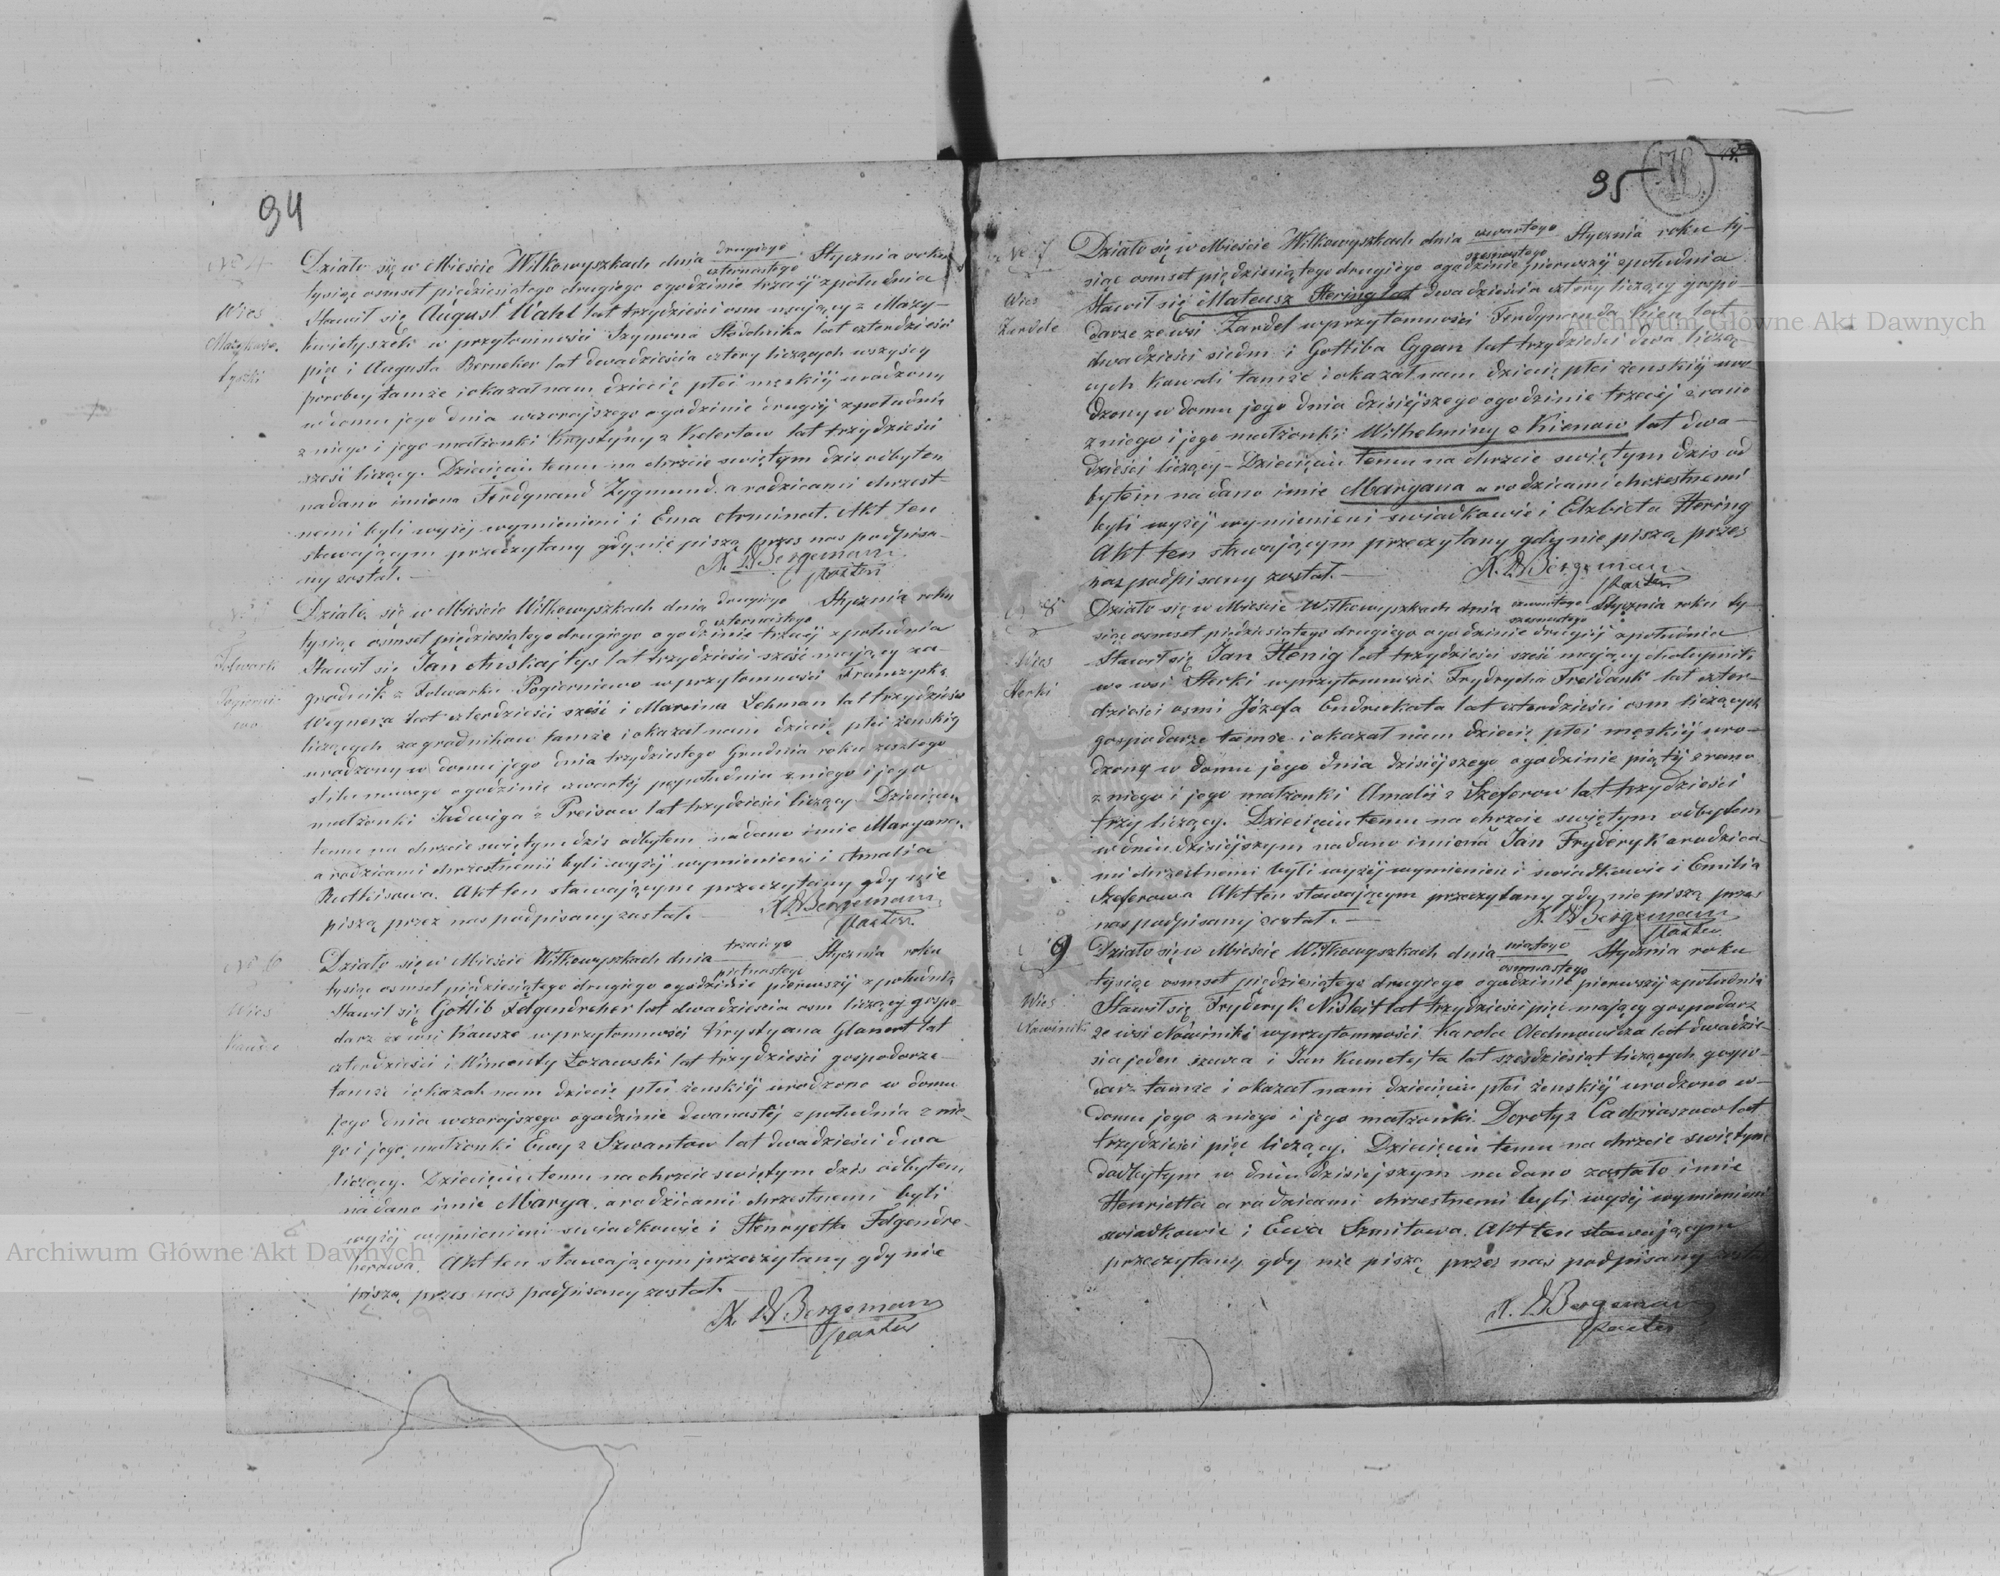 94
Nr 4
Wieś
Działo się w Mieście Wilkowyszkach dnia drugiego/czternastego Stycznia roku
tysiąc osmset pięćdziesiątego drugiego o godzinie trzeciej z południa
Stawił się August Wahl lat trzydzieści osm mający z Mazy-
kwietyszek w przytomności Szymona Stodolnika lat czterdzieści
pięc i Augusta Berneker lat dwadzieścia cztery liczących wszyscy
parobcy tamże i okazał nam dziecię płci męskiej urodzone
w domu jego dnia wczorajszego o godzinie drugiej z południa
z niego i jego małżonki Krystyny z lat trzydzieści
sześć liczącej. Dziecięciu temu na chrzcie świętym dziś odbytem
nadano imiona Ferdynand Zygmund, a rodzicami chrzest-
nemi byli wyżej wymienieni i Ema Arminat. Akt ten
stawającym przeczytany gdy nie piszą przez nas podpisa-
ny został.
K. W Bergemann
Pastor
Folwark
Działo się w Mieście Wilkowyszkach dnia drugiego/czternastego Stycznia roku
tysiąc osmset pięćdziesiątego drugiego o godzinie trzeciej z południa
Stawił się Jan lat trzydzieści sześć mający za-
grodnik z Folwarku Pogierniewo w przytomności Franciszka
Wegnera lat czterdzieści sześć i Marcina Lehman lat trzydzieści
liczących zagrodników tamże i okazał nam dziecię płci żeńskiej
urodzone w domu jego dnia trzydziestego Grudnia roku zeszłego
stilu nowego o godzinie czwartej popołudniu z niego i jego
małżonki Jadwiga z Preisow lat trzydzieści liczącej Dziecięciu
temu na chrzcie świętym dziś odbytem nadano imie Maryana,
a rodzicami chrzestnemi byli wyżej wymienieni i Amalia
Rutkisowa. Akt ten stawającym przeczytany gdy nie
piszą przez nas podpisany został.
K. W Bergemann
Pastor
Nr 6
Wieś
Działo się w Mieście Wilkowyszkach dnia trzeciego/piętnastego Stycznia roku
tysiąc osmset pięćdziesiątego drugiego o godzinie pierwszej z południa
Stawił się Gotlib Folgendreher lat dwadzieścia osm liczący gospo-
darz ze wsi Kausze w przytomności Krystyana Glanert lat
czterdzieści i Wincenty Łozowski lat trzydzieści gospodarze
tamże i okazał nam dziecię płci żeńskiej urodzone w domu
jego dnia wczorajszego o godzinie dwunastej z południa z nie-
go i jego małżonki Ewy z Szwantow lat dwadzieści dwa
liczącej. Dziecięciu temu na chrzcie świętym dziś odbytem,
nadano imie Marya, a rodzicami chrzestnemi byli
wyżej wymienieni świadkowie i Henryetta Folgendre-
herowa. Akt ten stawającym przeczytany gdy nie
piszą przez nas podpisany został.
K. W Bergemann
Pastor
95
Nr 7
Wieś
Zardele
Działo się w Mieście Wilkowyszkach dnia czwartego/szesnastego Stycznia roku ty-
siąc osmset pięćdziesiątego drugiego o godzinie pierwszej z południa
Stawił się Mateusz Hering lat dwadzieścia cztery liczący gospo-
darz ze wsi Zardel w przytomności Ferdynanda Kien lat
dwadzieści siedm i Gottliba Cygan lat trzydzieści dwa liczą-
cych Kowali tamże i okazał nam dziecię płci żeńskiej uro-
dzony w domu jego dnia dzisiejszego o godzinie trzeciej z rana
z niego i jego małżonki Wilhelminy z Kienow lat dwa-
dzieści liczącej – Dziecięciu temu na chrzcie świętym dziś od
bytem nadano imie Maryana a rodzicami chrzestnemi
byli wyżej wymienieni świadkowie i Elzbieta Hering
Akt ten stawającym przeczytany gdy nie piszą przez
nas podpisany został.
K. W Bergemann
Pastor
8
Wieś
Sterki
Działo się w Mieście Wilkowyszkach dnia czwartego/szesnastego Stycznia roku ty-
siąc osmset pięćdziesiątego drugiego o godzinie drugiej z południa
Stawił się Jan Henig lat trzydzieści sześć mający chałupnik
we wsi Sterki w przytomności Frydrycha Freidank lat czter-
dzieści osm i Józefa Endrukata lat czterdzieści osm liczących
gospodarze tamże i okazał nam dziecię płci męskiej uro-
dzony w domu jego dnia dzisiejszego o godzinie piątej z rana
z niego i jego małżonki Amalii z Szeferow lat trzydzieści
trzy liczącej. Dziecięciu temu na chrzcie świętym odbytem
w dniu dzisiejszym nadano imiona Jan Fryderyk a rodzica-
mi chrzestnemi byli wyżej wymienieni świadkowie i Emilia
Szeferowa Akt ten stawającym przeczytany gdy nie piszą przez
nas podpisany został.
K. W Bergemann
Pastor
9
Wieś
Nowiniki
Działo się w Mieście Wilkowyszkach dnia szóstego/osmnastego Stycznia roku
tysiąc osmset pięćdziesiątego drugiego o godzinie pierwszej z południa
Stawił się Fryderyk lat trzydzieści pięć mający gospodarz
ze wsi Nowiniki w przytomności Karola lat dwadzie-
ścia jeden szewca i Jan Kumetejta lat sześćdziesiąt liczących gospo-
darz tamże i okazał nam dziecięciu płci żeńskiej urodzono w
domu jego z niego i jego małżonki Doroty z lat
trzydzieści pięc liczącej. Dziecięciu temu na chrzcie świętym
odbytym w dniu dzisiejszym nadano zostało imie
Henrietta a rodzicami chrzestnemi byli wyżej wymienieni
świadkowie i Ewa Szmitowa. Akt ten stawającym
przeczytany gdy nie piszą przez nas podpisany został
K. W Bergemann
Pastor
Archiwum Główne Akt Dawnych
Archiwum Główne Akt Dawnych